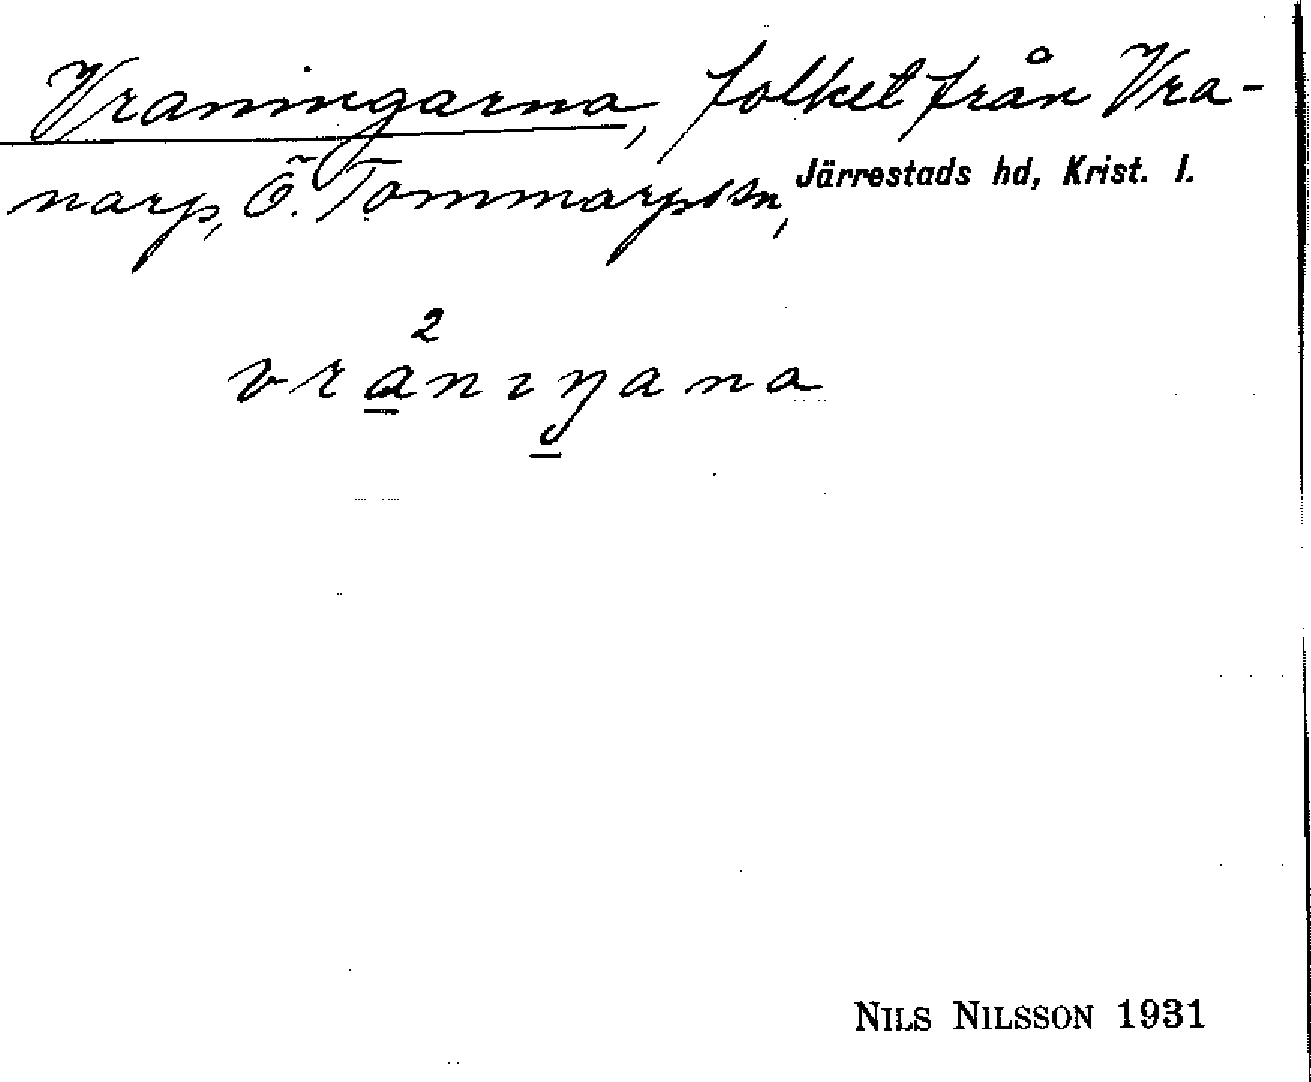 Vraningarna, folket från Vra-
narp, Ö. Tommarps sn, Järrestads hd, Krist. l.
2
vranıŋana
NILS NILSSON 1931